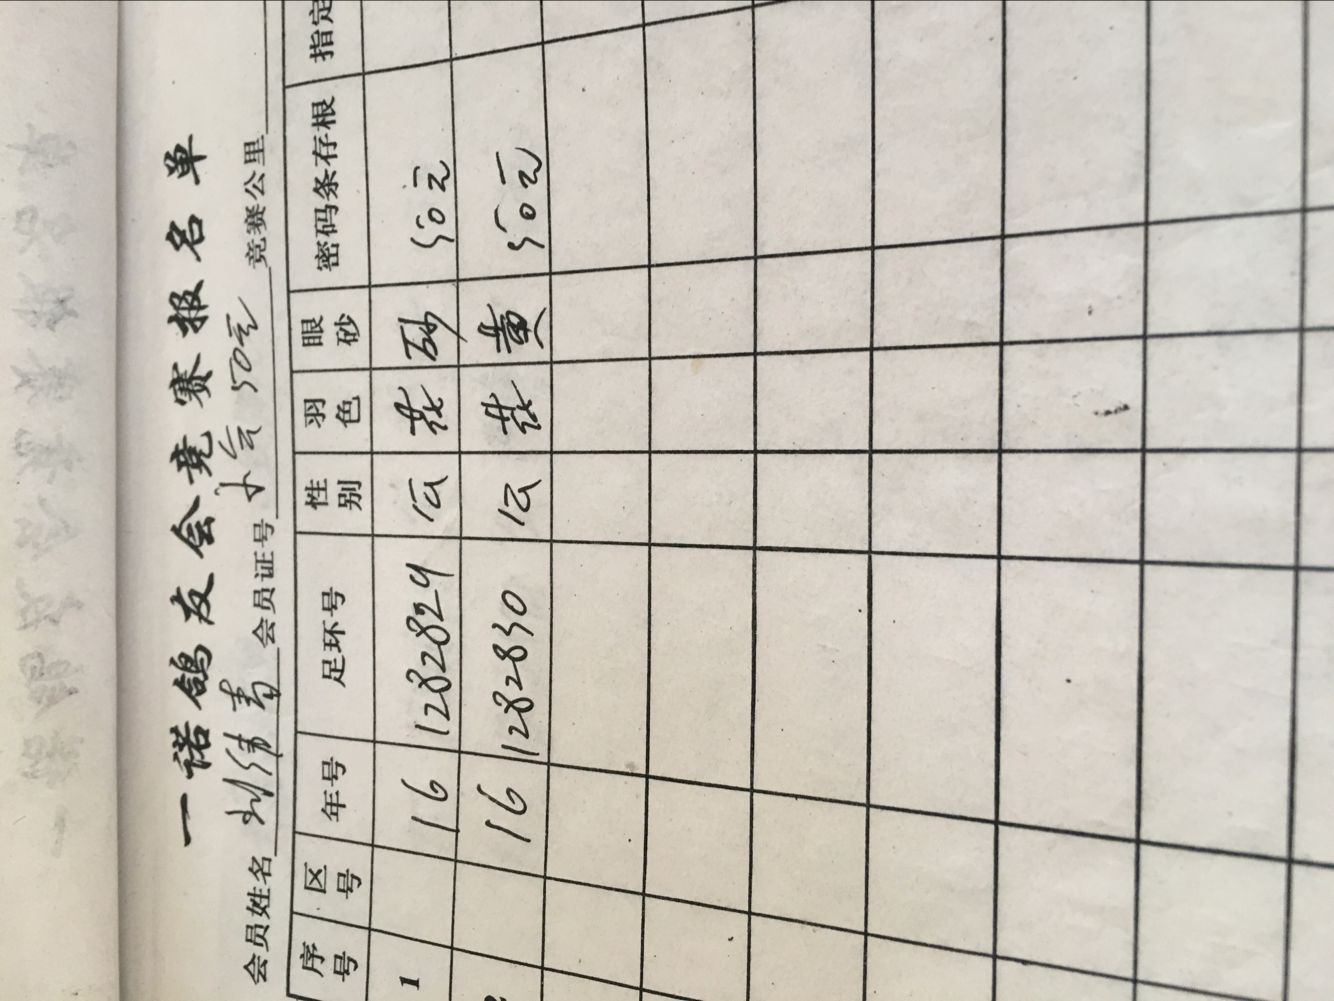 一诺鸽友会竞赛报名单
会员姓名 刘伟春 会员证号 卜会 50元 竞赛公里
序号 区号 年号 足环号 性别 羽色 眼砂 密码条存根 指定
1 16 1282829 公 花 砂 50元
2 16 1282830 公 花 黄 50元